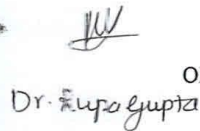 O
Dr. Rupa Gupta